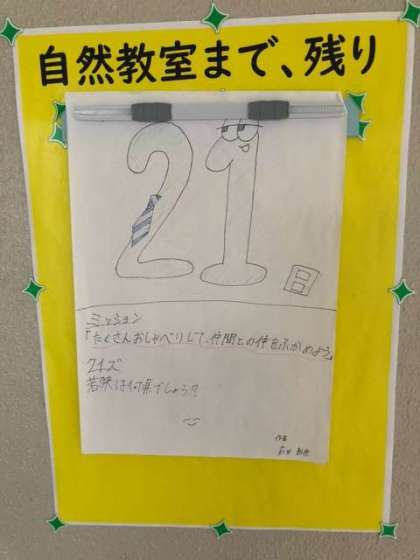 自然教室まで、残り
21
日
ミッション
「たくさんおしゃべりして、仲間との仲をふかめよう」
クイズ
若狭は何県でしょう?
作者